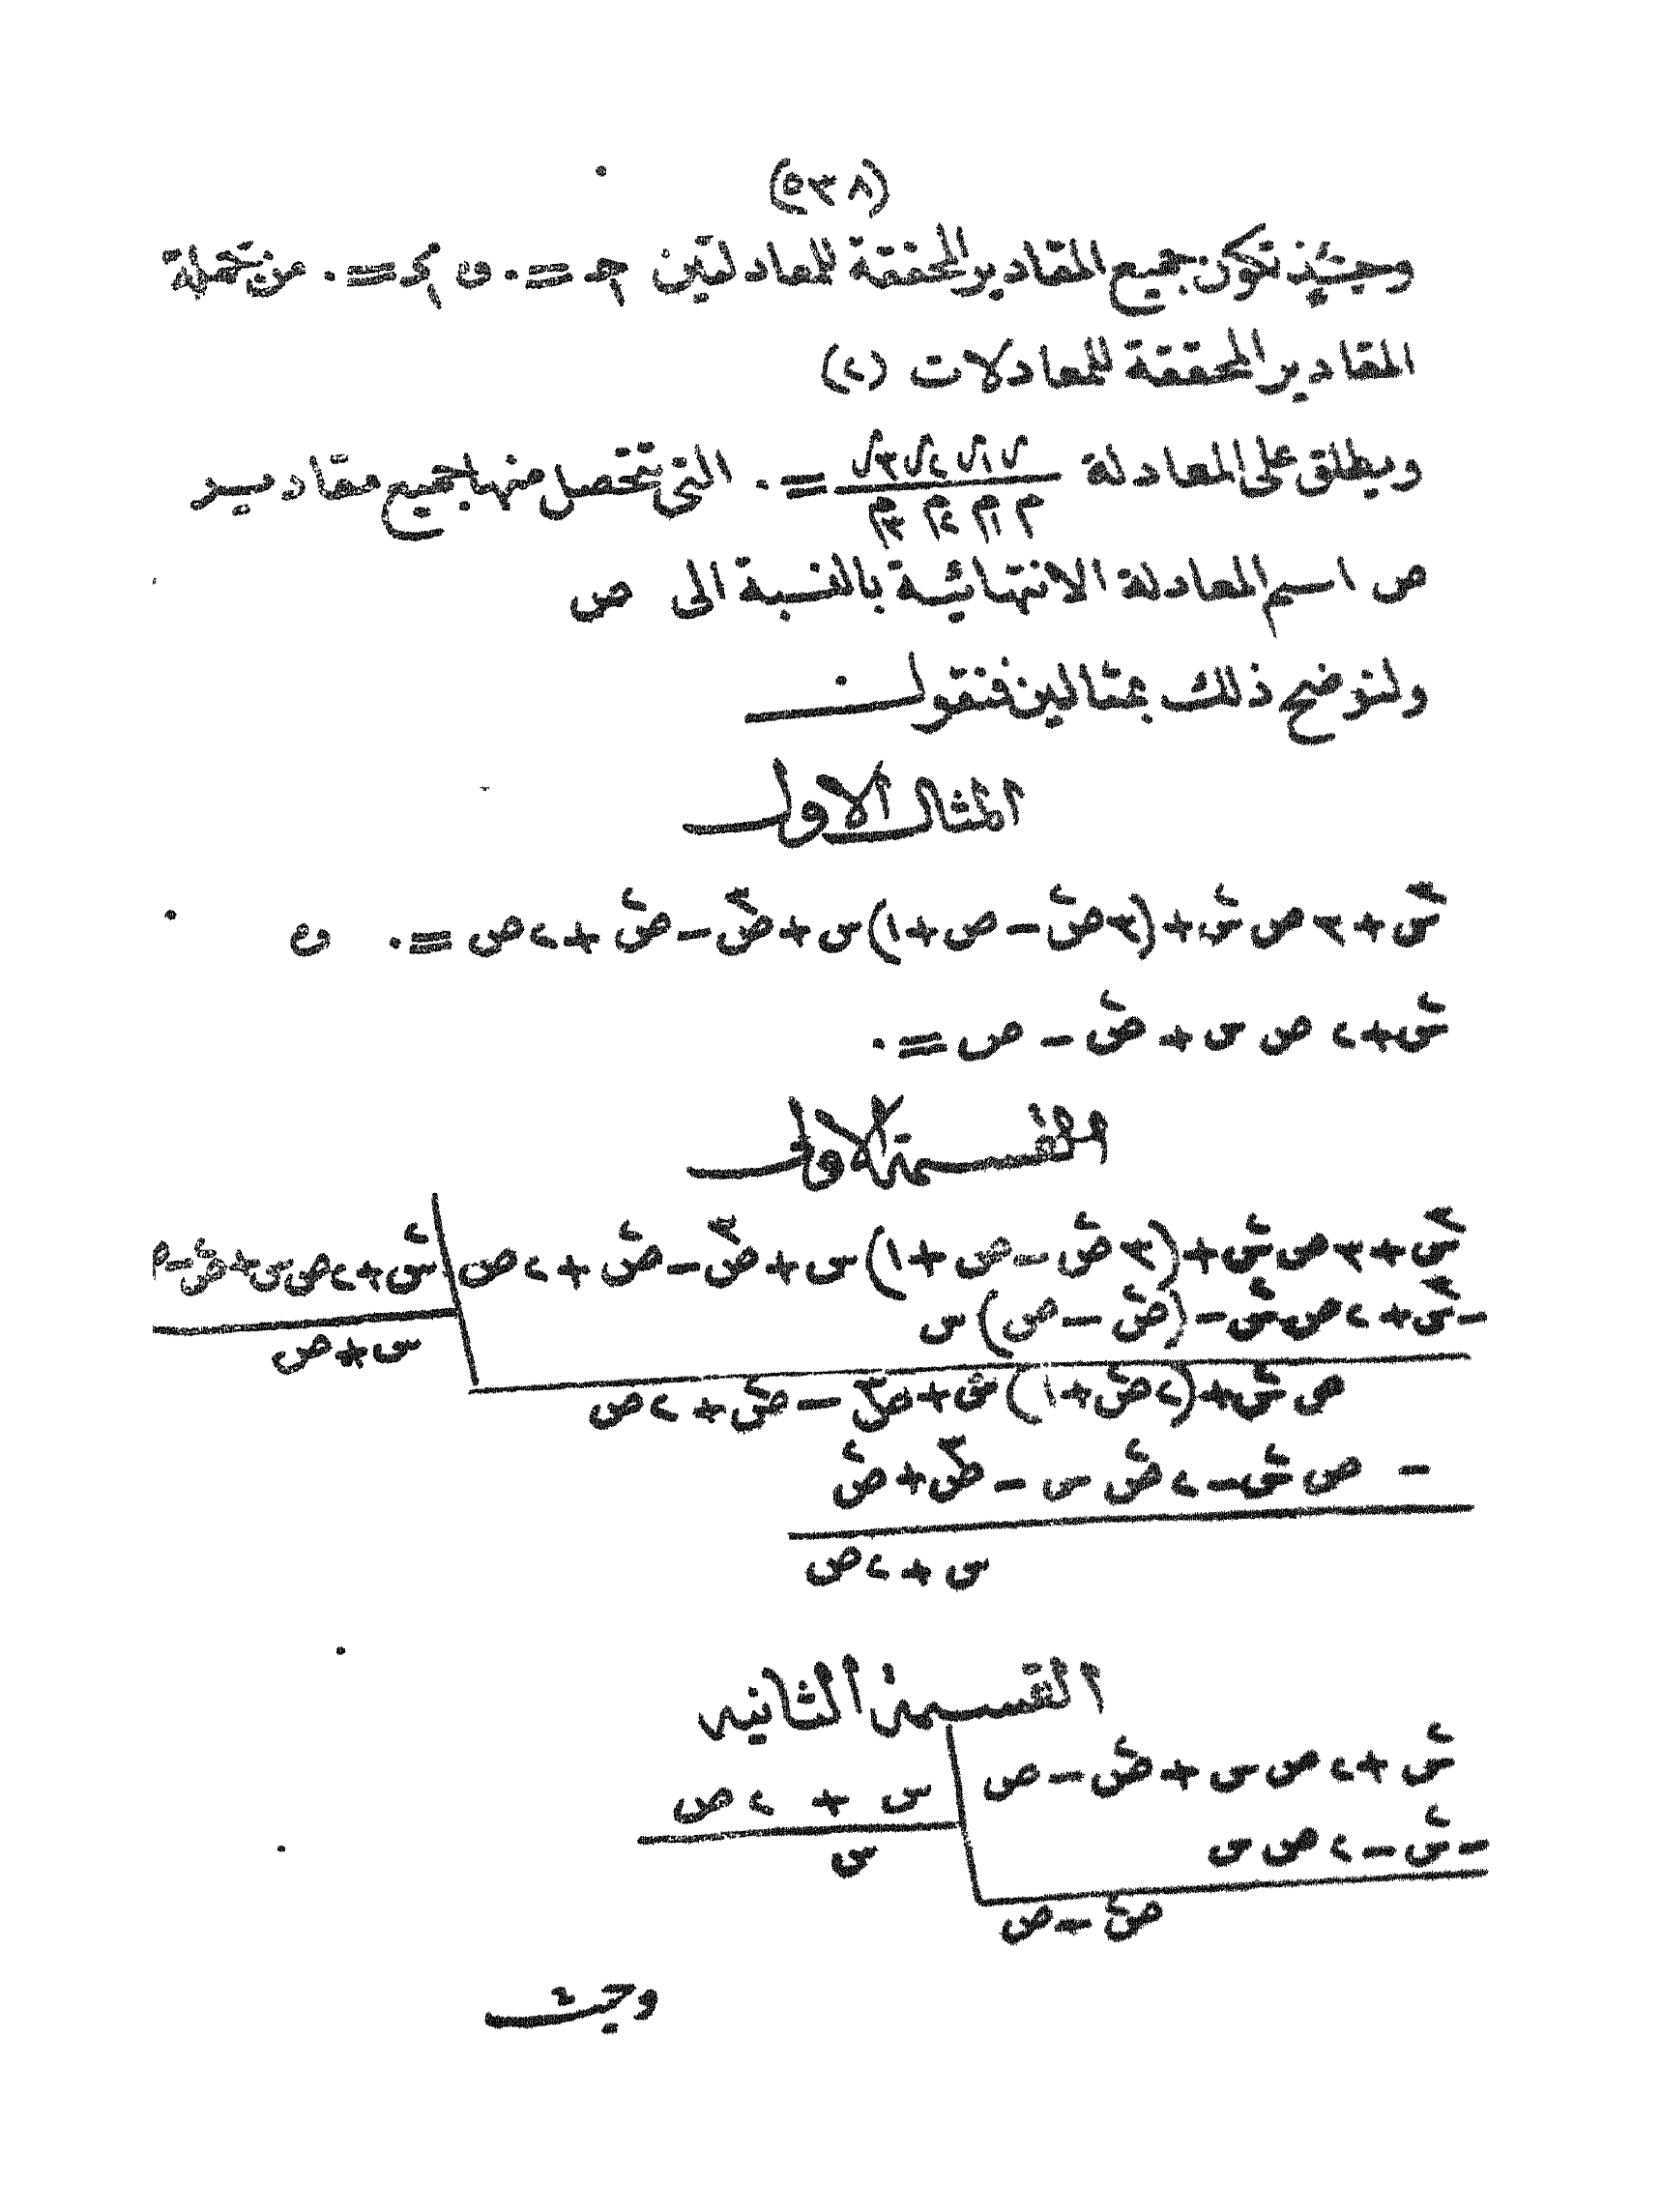 (٥٣٨)
وحينئذ تكون جميع المقادير المحققة للمعادلتين حـ = ٠ و ك = ٠ من جملة
المقادير المحققة للمعادلات (٢)
ويطلق على المعادلة <math>\frac{ل ل_١ ل_٢ ل_٣}{م م_١ م_٢ م_٣}</math> = ٠ التى تحصل منها جميع مقاديـر
ص اسم المعادلة الانتهائية بالنسبة الى ص
ولنوضح ذلك بمثالين فنقول
المثال الاول
س٣ + ٣ ص س٢ + (٣ص٢ − ص + ١) س + ص٣ − ص٢ + ٢ص = ٠ و
س٢ + ٢ ص س + ص٢ − ص = ٠
القسمة الاولى
س٣ + ٣ص س٢ + (٣ص٢ − ص + ١) س + ص٣ − ص٢ + ٢ص | س٢ + ٢ص س + ص٢ − ص
− س٣ + ٢ص س٢ − (ص٢ − ص) س | س + ص
ص س٢ + (٢ص٢ + ١) س + ص٣ − ص٢ + ٢ص
− ص س٢ − ٢ص٢ س − ص٣ + ص٢
س + ٢ص
القسمة الثانيه
س٢ + ٢ص س + ص٢ − ص | س + ٢ص
− س٢ − ٢ص س | س
ص٢ − ص
وحيث